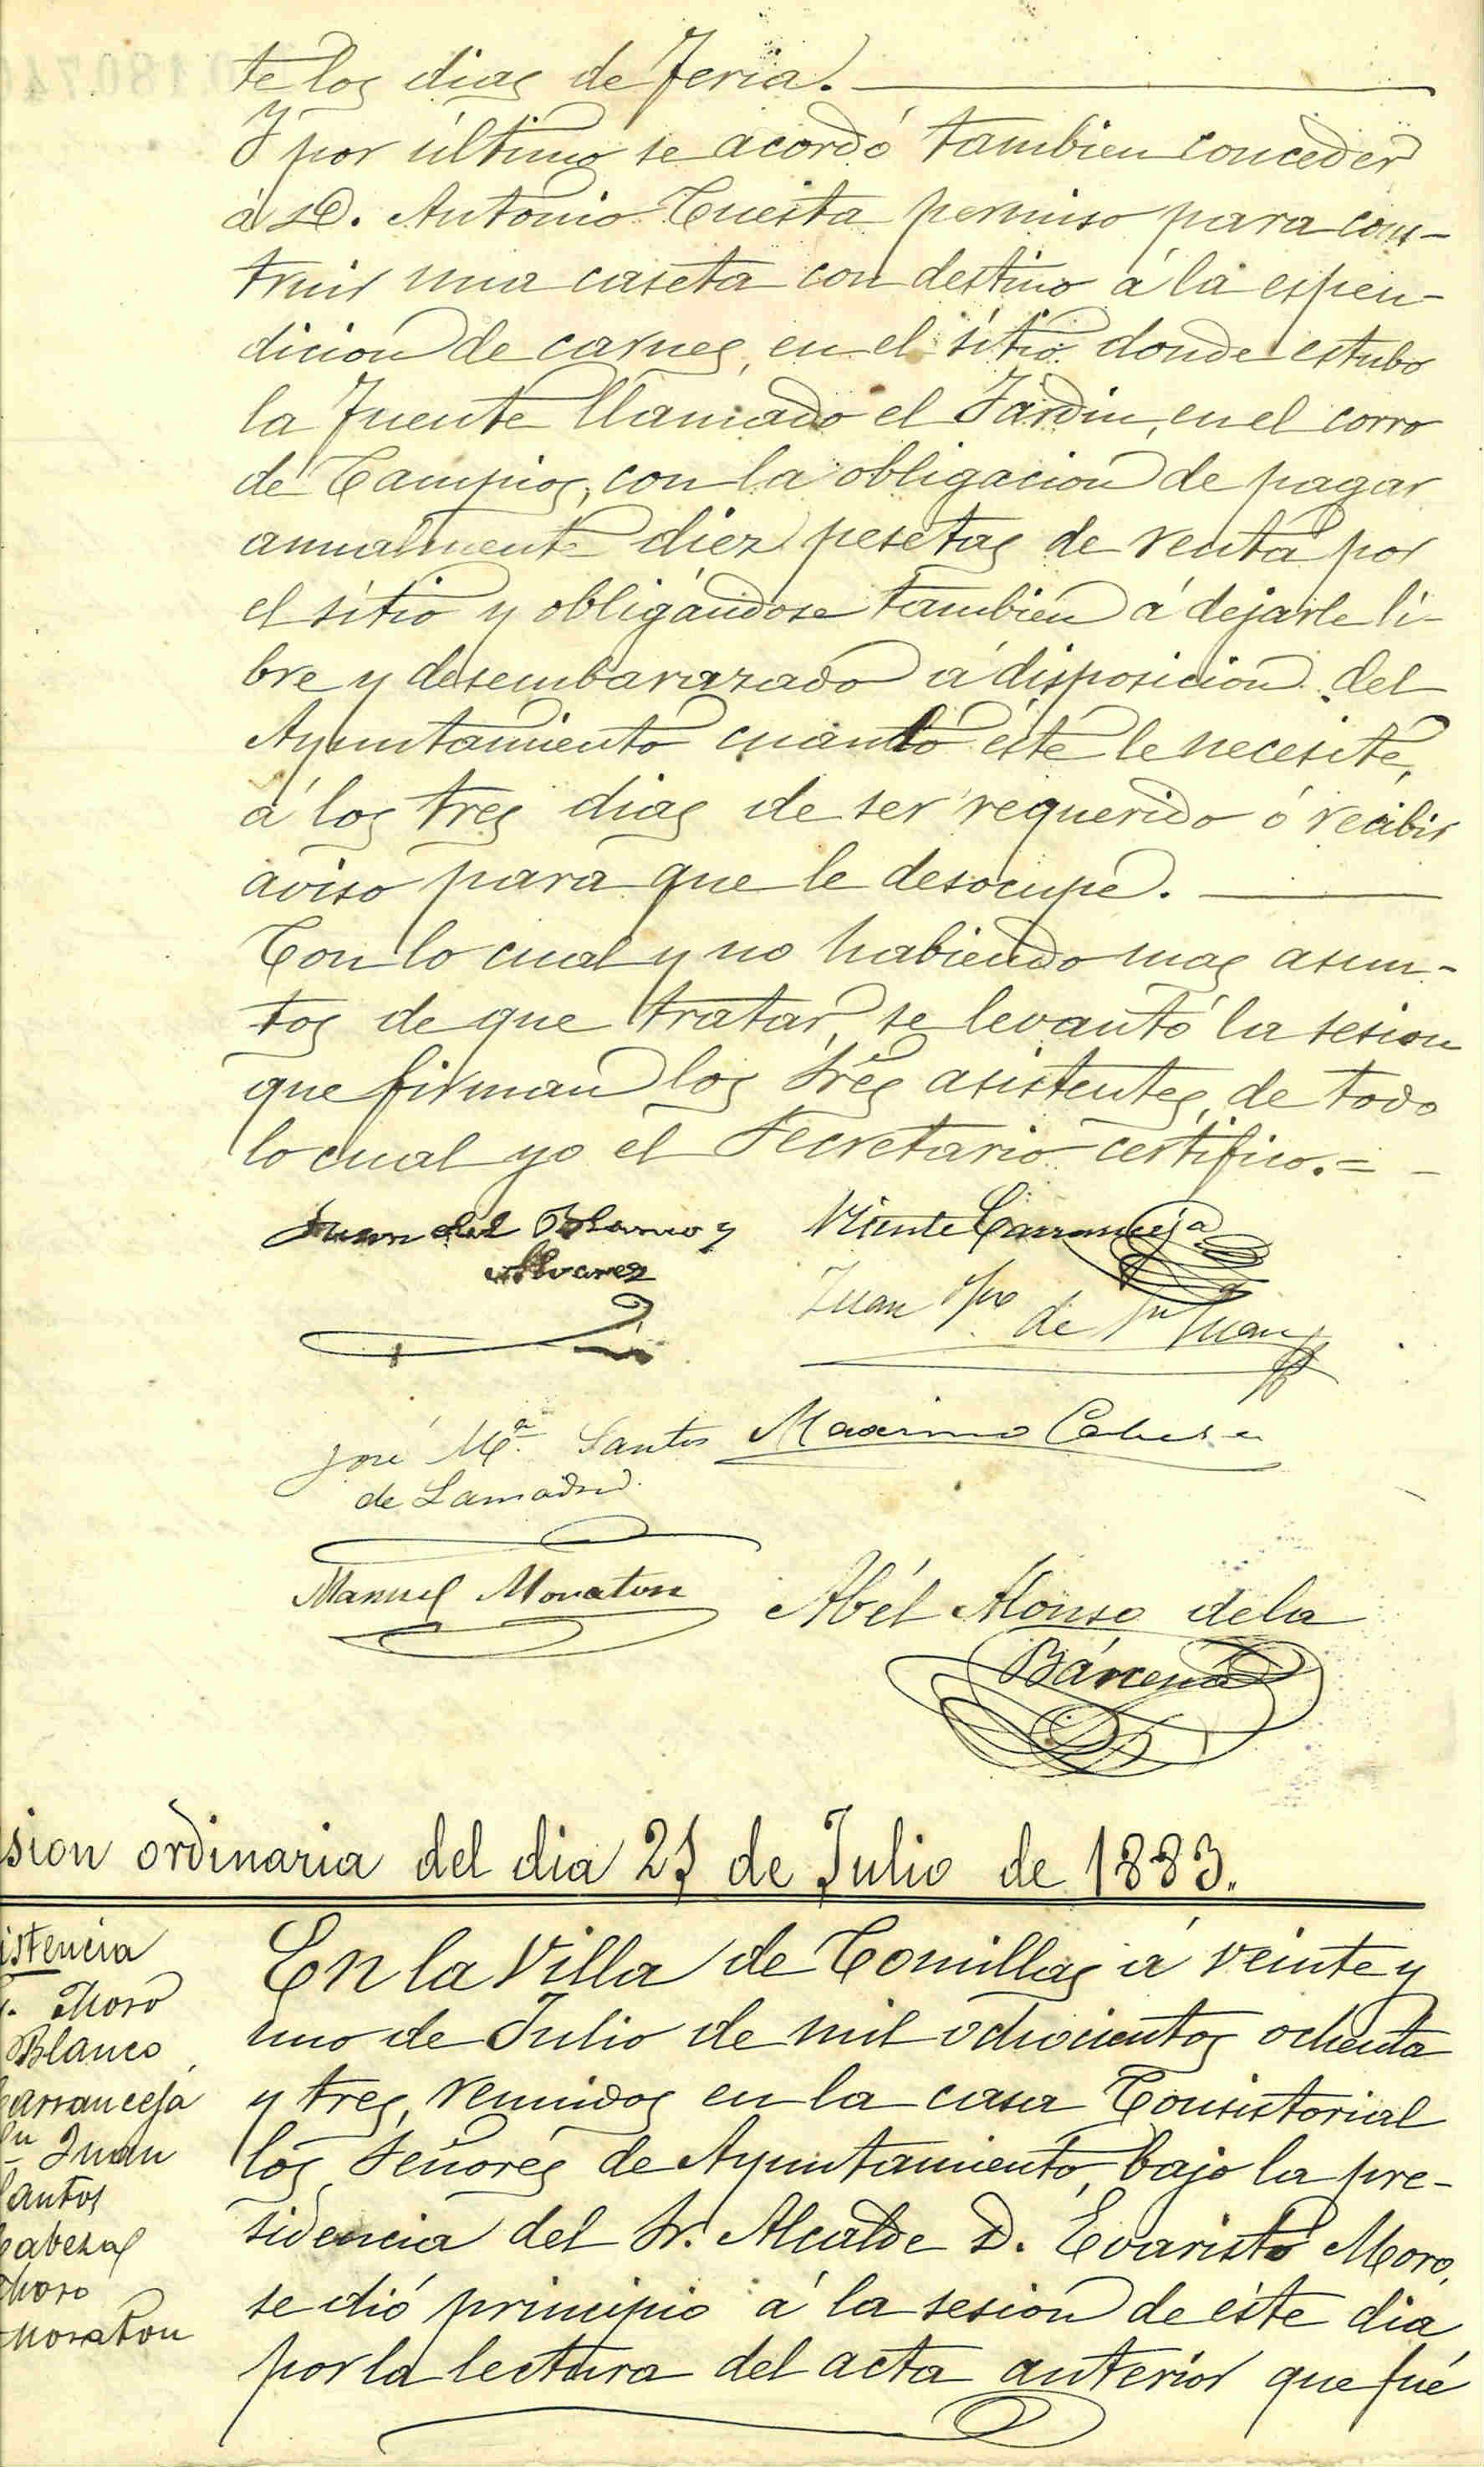 te los dias de Feria.
Y por último se acordó tambien conceder
á D. Antonio Cuesta permiso para cons-
truir una caseta con destino á la espen-
dicion de carnes, en el sitio donde estubo
la Fuente llamado el Jardin, en el corro
de Campios, con la obligacion de pagar
anualmente diez pesetas de renta por
el sitio y obligándose tambien á dejarle li-
bre y desembarazado á disposicion del
Ayuntamiento cuando éste le necesite,
á los tres dias de ser requerido ó recibir
aviso para que le desocupe.
Con lo cual y no habiendo mas asun-
tos de que tratar, se levantó la sesion
que firman los Sres asistentes, de todo
lo cual yo el Secretario certifico.=
Juan del Blanco y
Alvarez
Vicente Carranceja
Juan de Sn Juan
José Mª Santos
de Lamadrid
Maximo Cabeza
Manuel Moraton
Abél Alonso de la
Bárcena
sion ordinaria del dia 21 de Julio de 1883.
istencia
Moro
Blanco
Carranceja
Sn Juan
Santos
Cabezas
Moro
Moraton
En la Villa de Comillas á veinte y
uno de Julio de mil ochocientos ochenta
y tres, reunidos en la casa Consistorial
los Señores de Ayuntamiento, bajo la pre-
sidencia del Sr. Alcalde D. Evaristo Moro,
se dió principio á la sesion de éste dia
por la lectura del acta anterior que fué